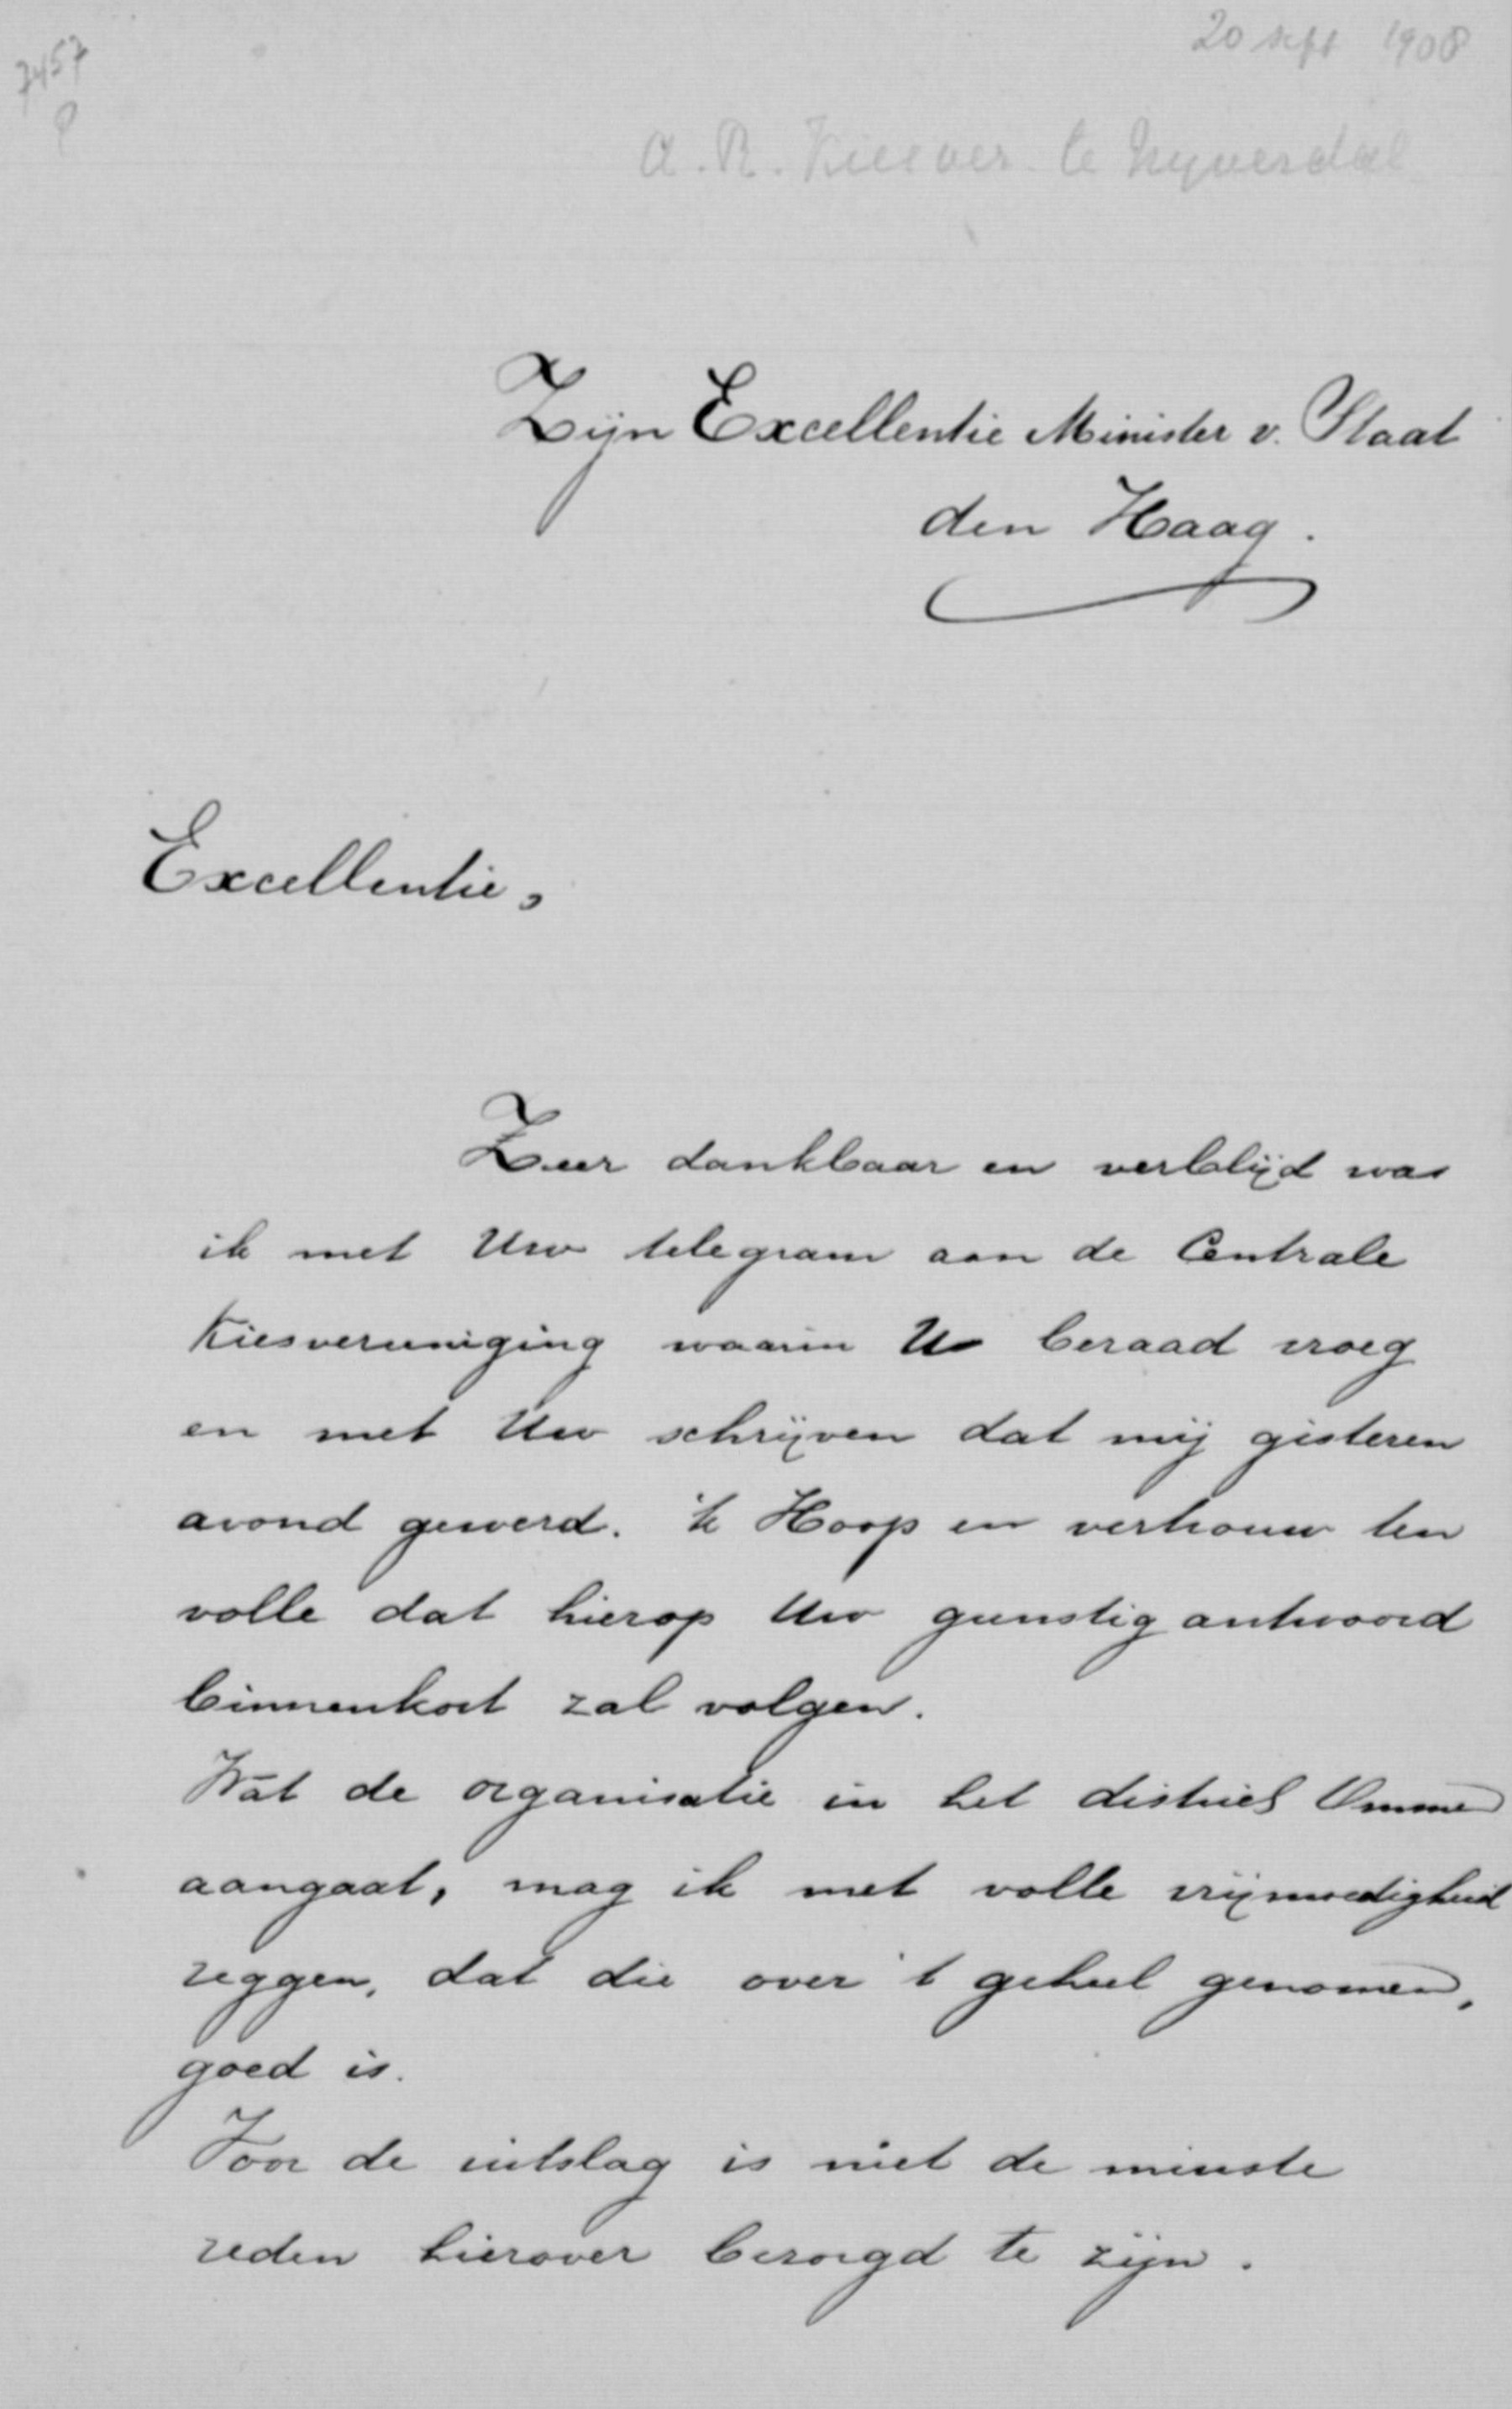 7457
20 sept 1908
A. R. Kiesver. te Nijverdal
Zijn Excellentie Minister v. Staat
den Haag.
Excellentie,
Zeer dankbaar en verblijd was
ik met Uw telegram aan de Centrale
Kiesvereeniging waarin U beraad vroeg
en met Uw schrijven dat mij gisteren
avond gewerd. 'k Hoop en vertrouw ten
volle dat hierop Uw gunstig antwoord
binnenkort zal volgen.
Wat de organisatie in het district Ommen
aangaat, mag ik met volle vrijmoedigheid
zeggen, dat die over 't geheel genomen,
goed is.
Voor de uitslag is niet de minste
reden hierover bezorgd te zijn.